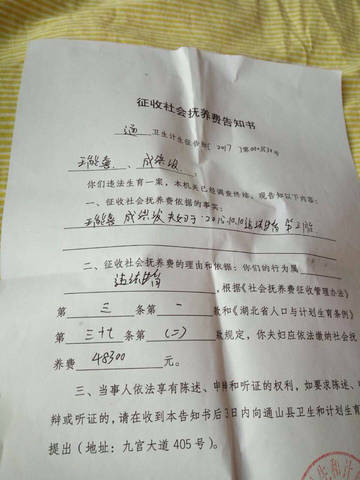 征收社会抚养费告知书
通 卫生计生征告字〔2017〕第
你们违法生育一案，本机关已经调查终结。现告知以下内容：
一、征收社会抚养费依据的事实：
夫妇于 违法生育第三胎
二、征收社会抚养费的理由和依据：你们的行为属
违法生育，根据《社会抚养费征收管理办法》
第三条第一款和《湖北省人口与计划生育条例》
第三十七条第(二)款规定，你夫妇应依法缴纳社会抚
养费48300元。
三、当事人依法享有陈述、申辩和听证的权利，如要求陈述、
辩或听证的，请在收到本告知书后3日内向通山县卫生和计划生育
提出（地址：九宫大道405号）。